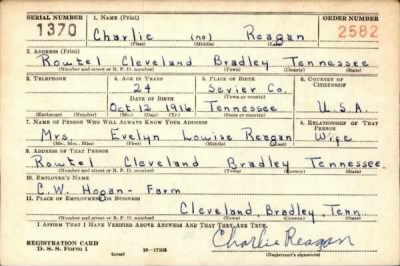 SERIAL NUMBER 1. NAME (Print) ORDER NUMBER
1370 Charlie (no) Reagan 2582
(First) (Middle) (Last)
2. ADDRESS (Print)
Route1 Cleveland Bradley Tennessee
(Number and street or R. F. D. number) (Town) (County) (State)
3. TELEPHONE 4. AGE IN YEARS 5. PLACE OF BIRTH 6. COUNTRY OF CITIZENSHIP
24 Sevier Co.
DATE OF BIRTH (Town or county)
Oct. 12, 1916 Tennessee U.S.A.
(Exchange) (Number) (Mo.) (Day) (Yr.) (State or country)
7. NAME OF PERSON WHO WILL ALWAYS KNOW YOUR ADDRESS 8. RELATIONSHIP OF THAT PERSON
Mrs. Evelyn Louise Reagan Wife
(Mr., Mrs., Miss) (First) (Middle) (Last)
9. ADDRESS OF THAT PERSON
Route1 Cleveland Bradley Tennessee
(Number and street or R. F. D. number) (Town) (County) (State)
10. EMPLOYER'S NAME
C.W. Hogan- Farm
11. PLACE OF EMPLOYMENT OR BUSINESS
Cleveland, Bradley, Tenn
(Number and street or R. F. D. number) (Town) (County) (State)
I AFFIRM THAT I HAVE VERIFIED ABOVE ANSWERS AND THAT THEY ARE TRUE.
REGISTRATION CARD Charlie Reagan
D. S. S. Form 1 (over) (Registrant's signature)